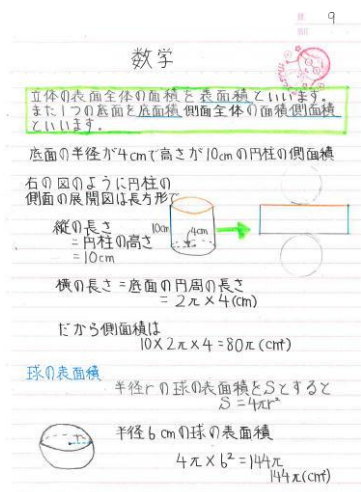 9
数学
立体の表面全体の面積を表面積といいます。
また1つの底面を底面積側面全体の面積側面積
といいます。
底面の半径が4cmで高さが10cmの円柱の側面積
右の図のように円柱の
側面の展開図は長方形で
縦の長さ
=円柱の高さ
=10cm
10cm
4cm
横の長さ=底面の円周の長さ
=2π×4(cm)
だから側面積は
10×2π×4=80π(cm²)
球の表面積
半径rの球の表面積をSとすると
S=4πr²
半径6cmの球の表面積
r
4π×6²=144π
144π(cm²)